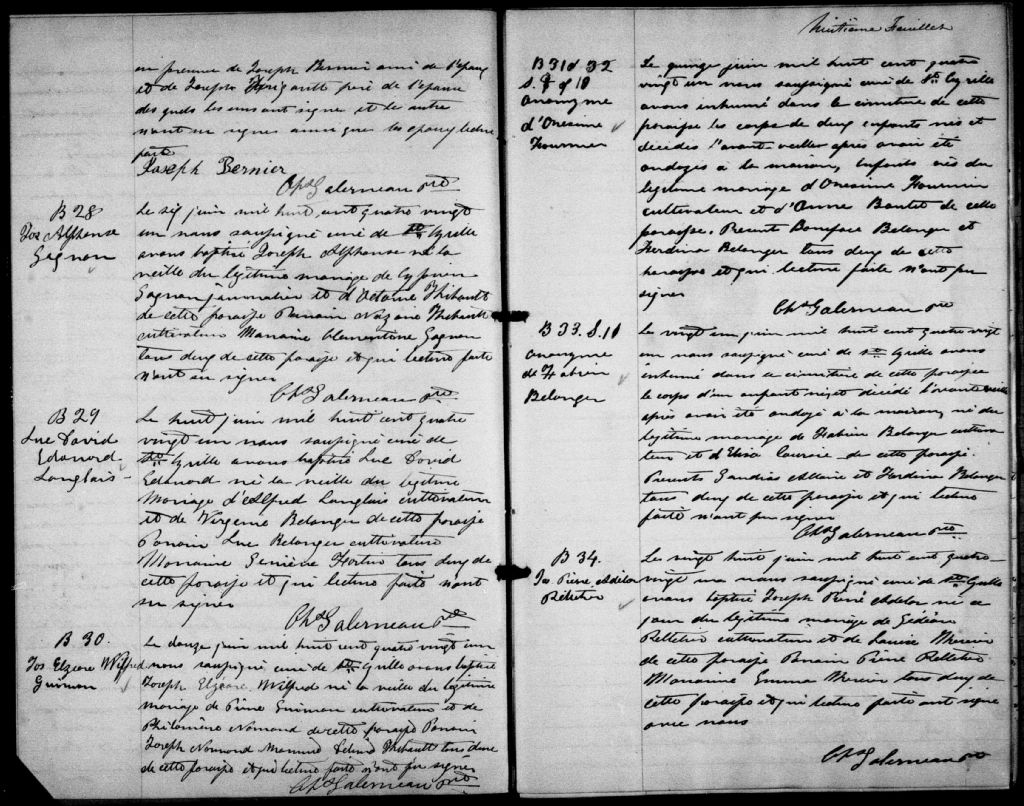 en presence de Joseph Bernier ami de l'epoux
et de Joseph Thrigault pere de l'epouse
des quels les uns ont signe et le autre
n'ont su signer ainsi que les epoux lecture
faite
Joseph Bernier
Chs Galerneau ptre
B 28
Jos Alphonse
Gagnon
Le six juin mil huit cent quatre vingt
un nous soussigné curé de St Cyrille
avons baptisé Joseph Alphonse né la
veille du légitime mariage de Cyprien
Gagnon journalier et d'Octavie Thibault
de cette paroisse Parrain Nazaire Thibault
cultivateur Marraine Clementine Gagnon
tous deux de cette paroisse et qui lecture faite
n'ont su signer
Chs Galerneau ptre
B 29
Luc David
Edouard
Langlais
Le huit juin mil huit cent quatre
vingt un nous soussigné curé de
St Cyrille avons baptisé Luc David
Edouard né la veille du légitime
Mariage d'Alfred Langlais cultivateur
et de Virginie Belanger de cette paroisse
Parrain Luc Belanger cultivateur
Marraine Fortin tous deux de
cette paroisse et qui lecture faite n'ont
su signer
Chs Galerneau ptre
B 30.
Jos Elzeare Wilfred
Guimon
Le douze juin mil huit cent quatre vingt un
nous soussigné curé de St Cyrille avons baptisé
Joseph Elzeare Wilfred né la veille du légitime
mariage de Pierre Guimon cultivateur et de
Philomène Normand de cette paroisse Parrain
Joseph Normand Thibault tous deux
de cette paroisse et qui lecture faite n'ont pu signer
Chs Galerneau ptre
Huitième Feuillet
B 31 & 32
S. 9 & 10
Anonyme
d'Onesime
Fournier
Le quinze juin mil huit cent quatre
vingt un nous soussigné curé de St Cyrille
avons inhumé dans le cimetiere de cette
paroisse les corps de deux enfants nés et
décédés l'avant veille après avoir été
ondoyés à la maison, enfants nés du
légitime mariage d'Onesime Fournier
cultivateur et d'Anne Boutet de cette
paroisse. Present Boniface Belanger et
Ferdina Belanger tous deux de cette
paroisse et qui lecture faite n'ont pu
signer
Chs Galerneau ptre
B 33. S. 11
Anonyme
de Fabien
Belanger
Le vingt un juin mil huit cent quatre vingt
un nous soussigné curé de St Cyrille avons
inhumé dans le cimetiere de cette paroisse
le corps d'un enfant né et décédé l'avant veille
après avoir été ondoyé à la maison, né du
légitime mariage de Fabien Belanger cultiva
teur et d'Elisa Caron de cette paroisse.
Presents et Ferdina Belanger
tous deux de cette paroisse et qui lecture
faite n'ont pu signer
Chs Galerneau ptre
B 34.
Jos Pierre Adelor
Pelletier
Le vingt huit juin mil huit cent quatre
vingt un nous soussigné curé de St Cyrille
avons baptisé Joseph Pierre Adelor né ce
jour du légitime mariage de Gédéon
Pelletier cultivateur et de Louise Mercier
de cette paroisse Parrain Pierre Pelletier
Marraine Emma Mercier tous deux de
cette paroisse et qui lecture faite ont signé
avec nous
Chs Galerneau ptre